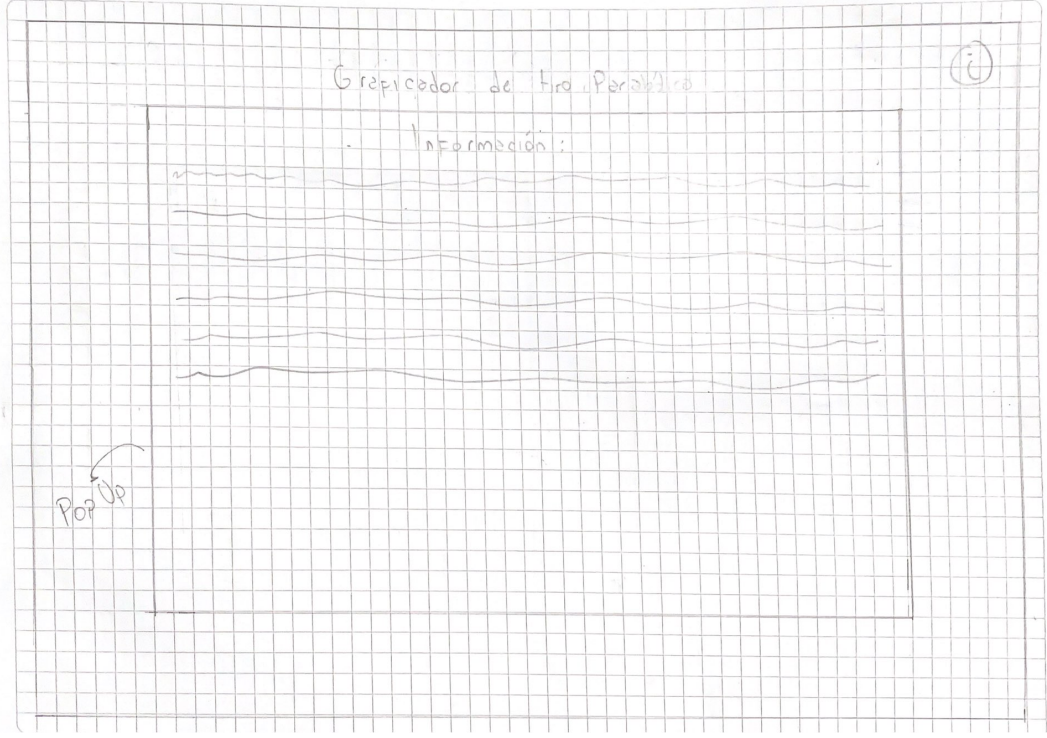 Graficador de tiro Parabólico
i
Información:
Pop Up